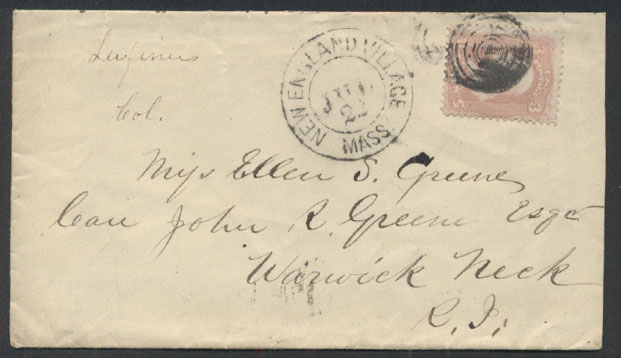 Col.
NEW ENGLAND VILLAGE
JUL
MASS
3
Miss Ellen S. Greene
Care John R Greene Esqr
Warwick Neck
R. I.